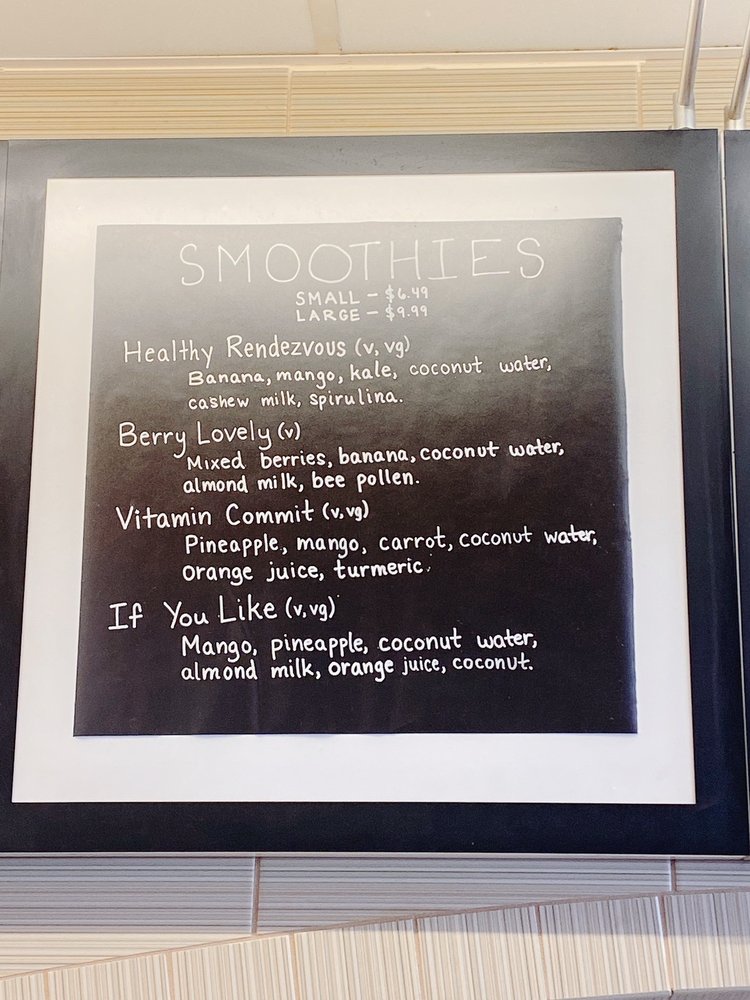 SMOOTHIES
SMALL - $6.49
LARGE - $9.99
Healthy Rendezvous (v, vg)
Banana, mango, kale, coconut water,
cashew milk, spirulina.
Berry Lovely (v)
Mixed berries, banana, coconut water,
almond milk, bee pollen.
Vitamin Commit (v, vg)
Pineapple, mango, carrot, coconut water,
orange juice, turmeric.
If You Like (v, vg)
Mango, pineapple, coconut water,
almond milk, orange juice, coconut.